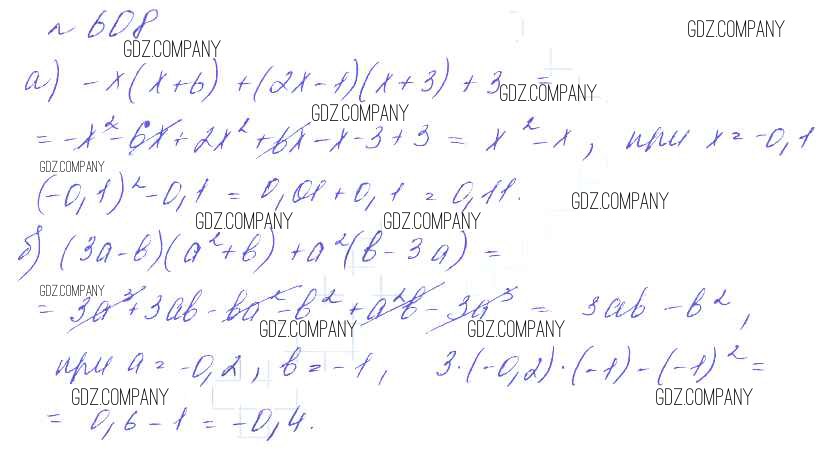 № 608
GDZ.COMPANY GDZ.COMPANY
а) -x(x+6) + (2x-1)(x+3) + 3 =
GDZ.COMPANY GDZ.COMPANY
= -x² - 6x + 2x² + 6x - x - 3 + 3 = x² - x, при x = -0,1
GDZ.COMPANY
(-0,1)² - 0,1 = 0,01 + 0,1 = 0,11.
GDZ.COMPANY GDZ.COMPANY GDZ.COMPANY
б) (3a-b)(a²+b) + a²(b-3a) =
GDZ.COMPANY
= 3a³ + 3ab - ba² - b² + a²b - 3a³ = 3ab - b²,
GDZ.COMPANY GDZ.COMPANY
при a = -0,2, b = -1, 3·(-0,2)·(-1) - (-1)² =
GDZ.COMPANY GDZ.COMPANY
= 0,6 - 1 = -0,4.